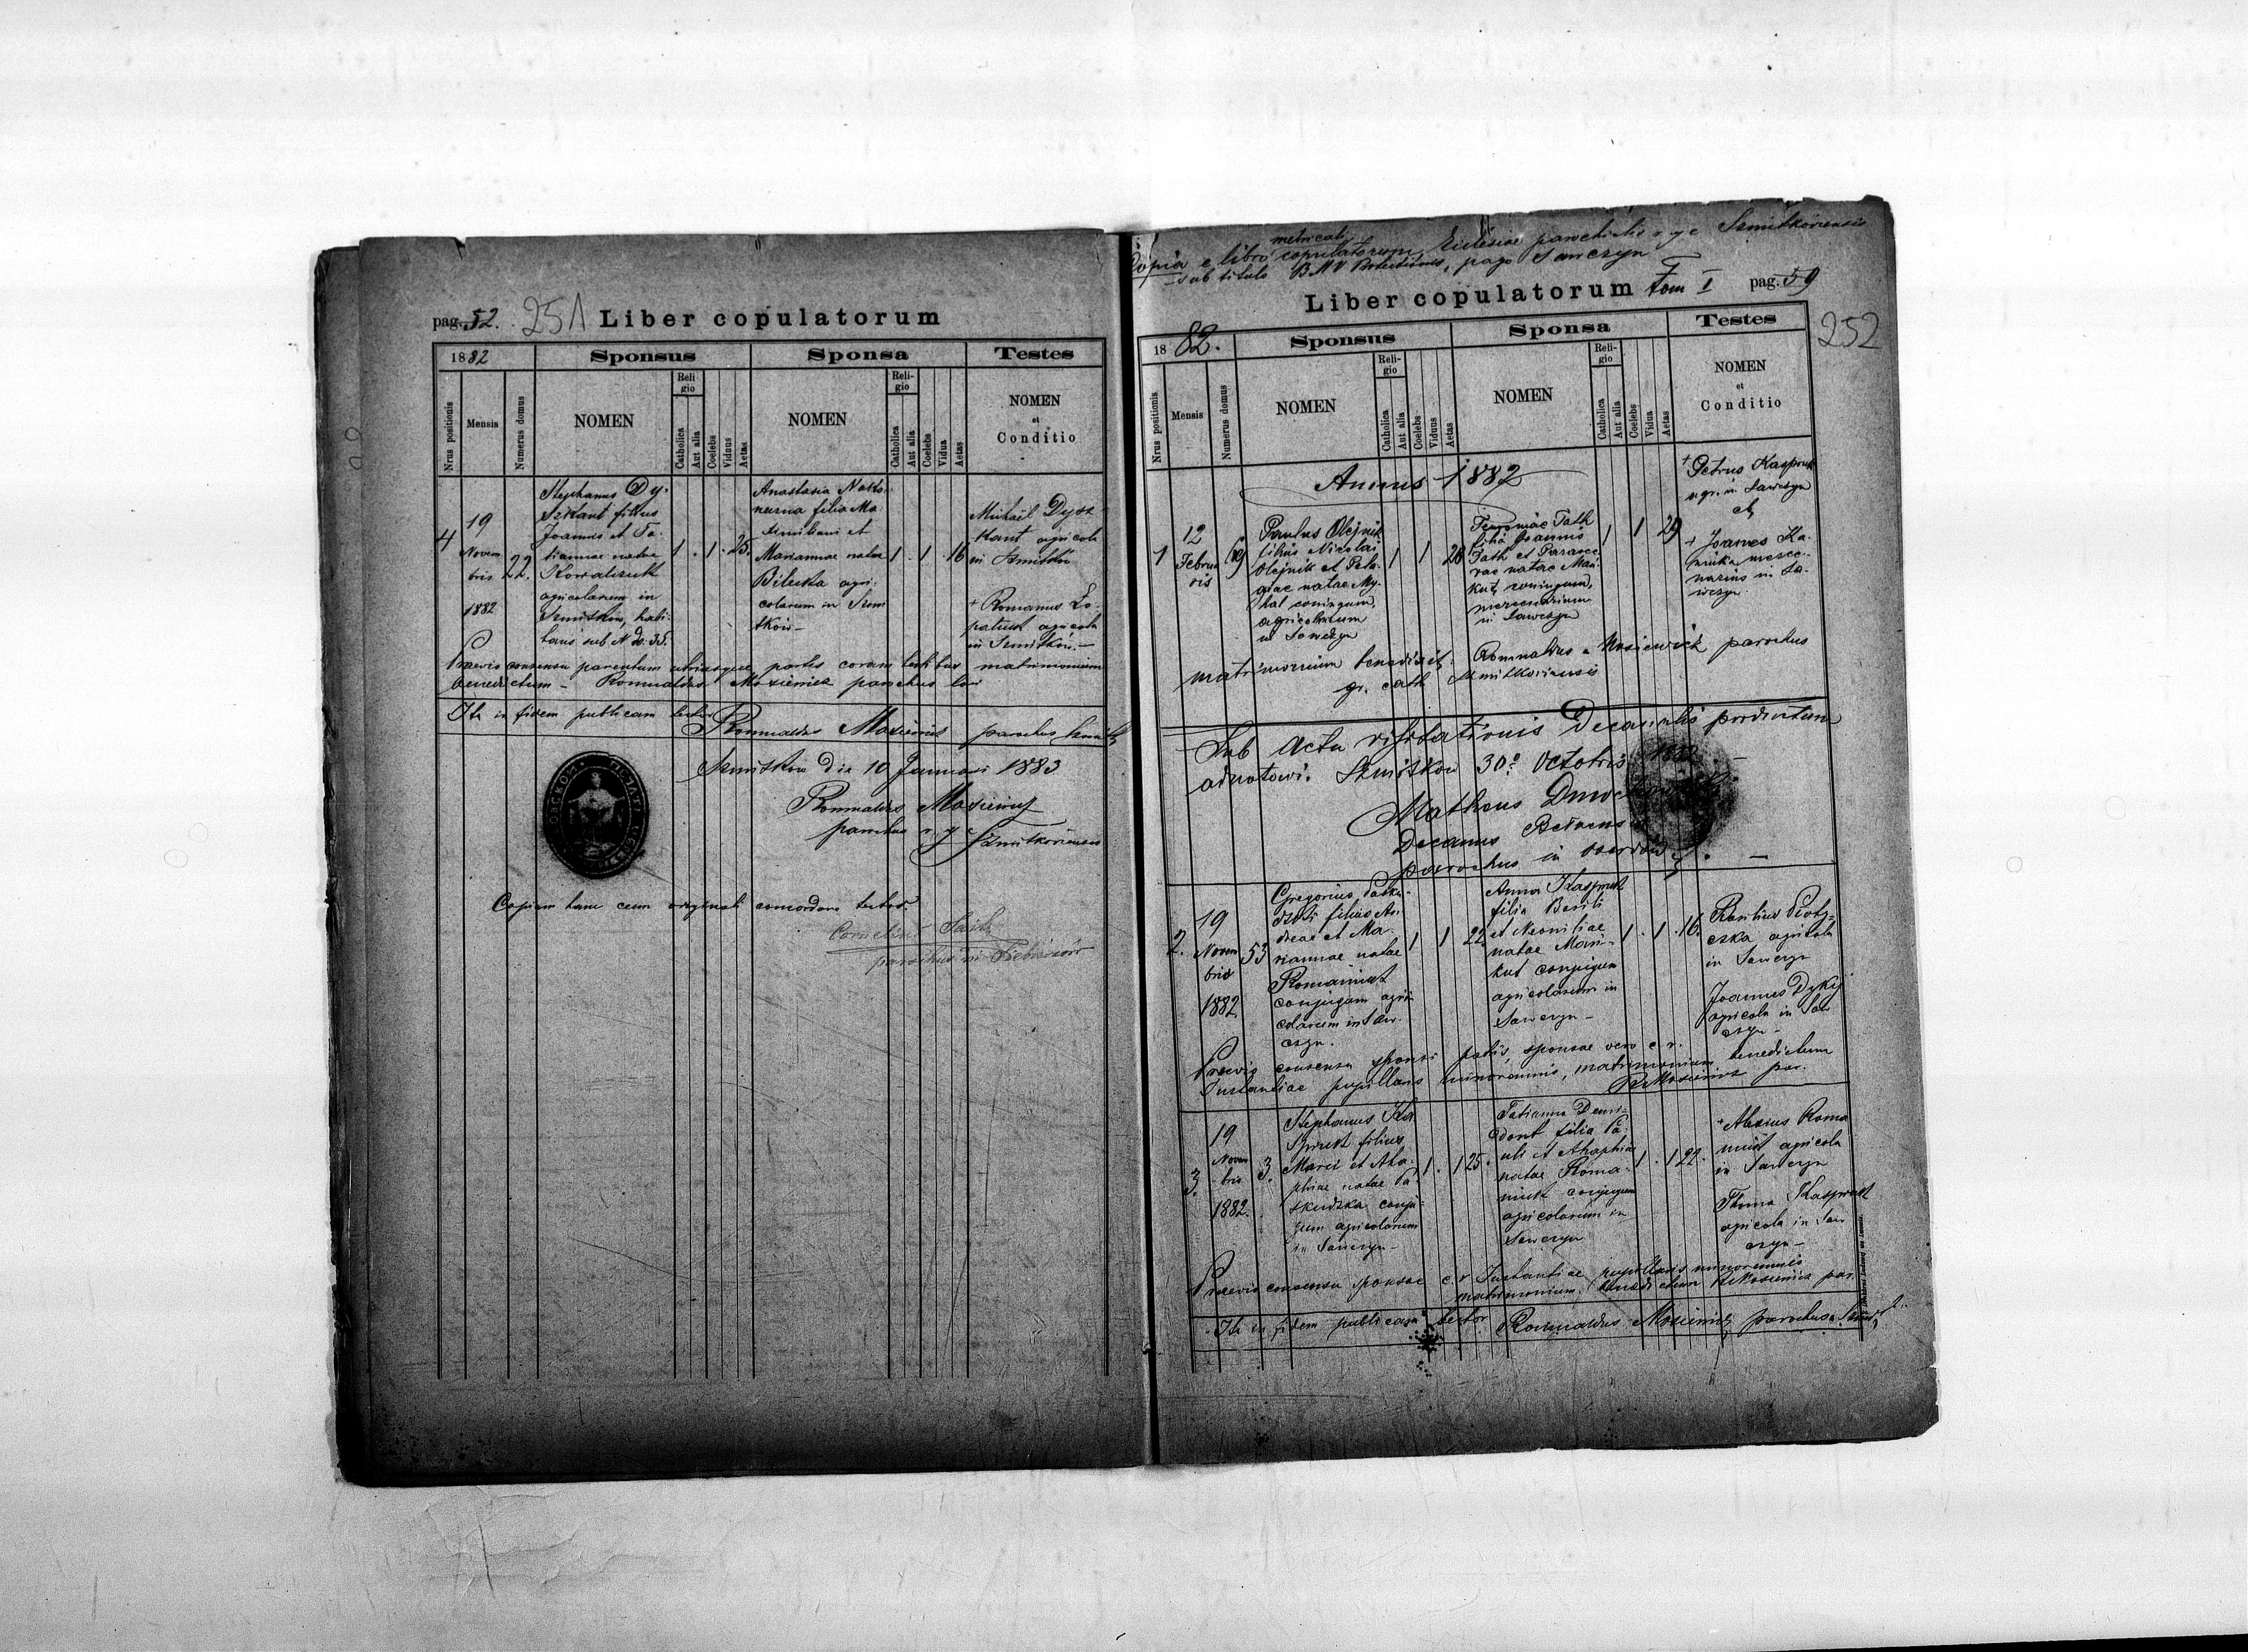 pag. 52. 251 Liber copulatorum
1882 Sponsus Sponsa Testes
Nrus positionis Mensis Numerus domus NOMEN Religio Catholica Aut alia Coelebs Viduus Aetas NOMEN Religio Catholica Aut alia Coelebs Vidua Aetas NOMEN et Conditio
4 19 Novem bris 1882 22.
Stephanus Dy-
szkant filius
Joannis et Ta-
tiannae natae
Kowalczuk
agricolarum in
Szmitków, habi-
tans sub N do: 35.
1 . 1 . 25.
Anastasia
filia Ma-
ximiliani et
Mariannae natae
Bilecka agri-
colarum in Szmi
tków -
1 . 1 . 16
Michaël Dysz-
kant agricola
in Szmitków
+ Romanus Ło-
patiuk agricola
in Szmitków. -
Praevio consensu parentum utriusque partis coram testibus matrimonium
benedictum - Romualdus Mosiewicz parochus loci
Ita in fidem publicam testor Romualdus Mosiewicz parochus
Szmitków die 10 Januari 1883
Romualdus Mosiewicz
parochus r. g. c. Szmitkoviensis
Copiam hanc cum originali concordare testor.
Cornelius
parochus in
Copia e libro metricali copulatorum Ecclesiae parochialis r. g. c. Szmitkoviensis
sub titulo B M V, pago Sawczyn
Liber copulatorum Tom I pag. 59
252
1882. Sponsus Sponsa Testes
Nrus positionis Mensis Numerus domus NOMEN Religio Catholica Aut alia Coelebs Viduus Aetas NOMEN Religio Catholica Aut alia Coelebs Vidua Aetas NOMEN et Conditio
Annus 1882
1 12 Februa ris 19
Paulus Olejnik
filius Nicolai
Olejnik et Pela-
giae natae My-
hal coniugum,
agricolarum
in Sawczyn
1 1 28
Fath
filia Joannis
Fath et Parasce-
vae natae Mań-
kut, coniugum,
mercenariorum
in Sawczyn
1 1 29
+ Petrus Kaspruk
agr. in Sawczyn
et
+ Joannes Ka-
minka merce-
narius in Sa-
wczyn.
matrimonium benedixit Romualdus Mosiewicz parochus
gr. cath Szmitkoviensis
Sub actu visitationis Decanalis productum
adnotavi. Szmitków 30º Octobris 1882 -
Matheus
Decanus Belzensis
parochus in
2. 19 Novem bris 1882 53
Gregorius
filius An
dreae et Ma-
riannae natae
Romaniuk
conjugum agri-
colarum in Saw-
czyn.
1 1 22
Anna Kaspruk
filia Basili
et Neonillae
natae Mań-
kut conjugum
agricolarum in
Sawczyn -
1 . 1 . 16.
Basilius
agricola
in Sawczyn
Joannes Dykij
agricola in Saw
czyn -
Praevio consensu sponsi patris, sponsae vero c. r.
Instantiae pupillaris minorennis, matrimonium benedictum
R. Mosiewicz par.
3. 19 Novem bris 1882. 3.
Stephanus Ka
spruk filius
Marci et Aha-
phiae natae Pa-
conju
gum agricolarum
in Sawczyn -
1 . 1 25.
Tatianna Demi-
filia Pa-
uli et Ahaphiae
natae Roma-
niuk conjugum
agricolarum in
Sawczyn
1 . 1 22.
+ Alexius Roma
niuk agricola
in Sawczyn
Thoma Kaspruk
agricola in Saw
czyn -
Praevio consensu sponsae c. r. Instantiae pupillaris minorennis
matrimonium benedictum R. Mosiewicz par.
Ita in fidem publicam testor Romualdus Mosiewicz parochus